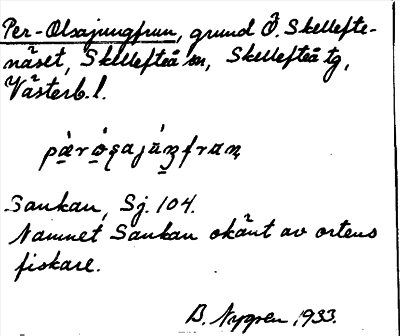 Per-Olsajungfrun, grund Ö. Skellefte-
näset, Skellefteå sn, Skellefteå tg,
Västerb. l.
Sankan, Sj. 104.
Namnet Sankan okänt av ortens
fiskare.
B. Nygren 1933.